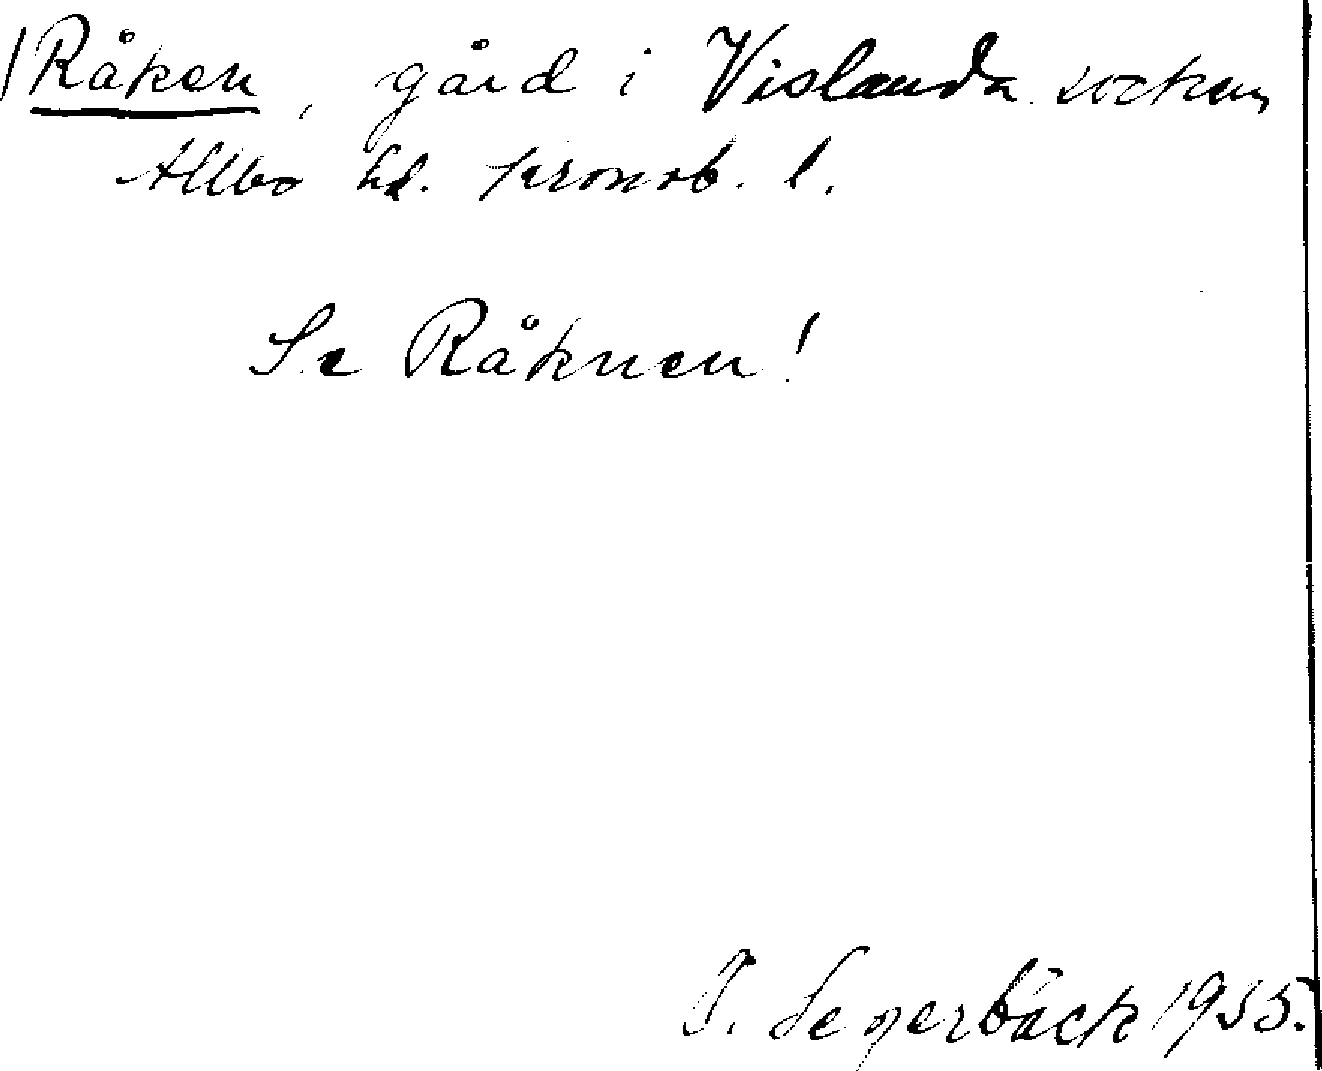 Råken, gård i Vislanda socken,
Allbo hd. Kronob. l.
Se Råknen!
P. Segerbäck 1955.